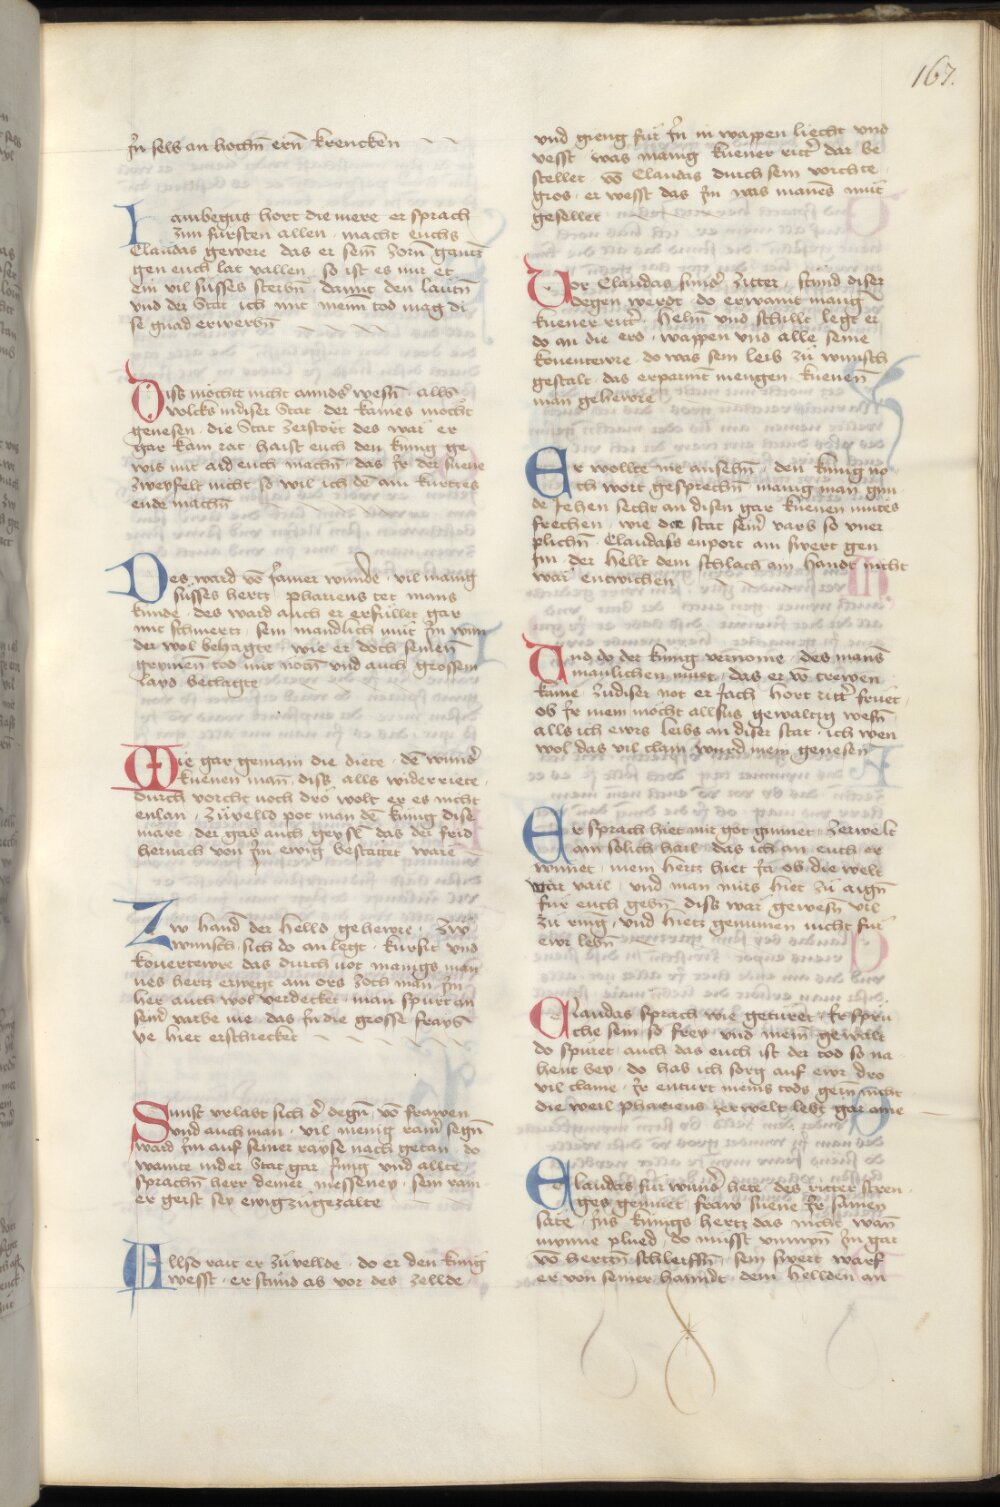 167.
Jn selb an hochn̄ ern̄ krencken
Lambegus hort die mere er sprach
zun fursten allen · macht euchs
Claudas gewere das er sein̄ zorn̄ gantz
gen euch lat vallen · so ist es mir et
ein vil susses sterbn̄ · damit den lautn̄
vnd der Stat ich mit meim tod mag di
se gnad erwerbn̄
Diss möcht nicht annders̄ wesn̄ · alls
volcks in diser Stat · der kaines möcht
genesen · die Stat zerstört des war er
gar kain rat · haist euch den kunig ge
wis mit aid euch machn̄ · das Jr der suene
zweyfelt nicht so wil ich dē ain kurtzes
ende machn̄
Des ward vō Jamer wunde · vil manig
süsses hertz · phariens tet mans
kunde · des ward auch er erfüllet gar
mit schmertz · sein manlich müt Jn wun
der wol behagte · wie er doch seinen̄
grymen̄ tod mit nöten̄ vnd auch grossem
layd beclagte
Wie gar gemain die diete · dē wund̄
kuenen man̄ · diss alls widerriete ·
durch vorcht noch dro wolt er es nicht
enlan · zuvelld pot man dē kunig dise
märe · der gab auch geysl das der frid
hernach von Jm ewig bestättet wäre
Zw hand̄ der helld gehewre · zw
wunsch sich do an legt · kursit vnd
kouertewre das durch not manigs man
nes hertz erwegt ain ors zoch man Jm
her auch wol verdecket · man spurt an
seinr̄ varbe nie das Jn die grosse frays
ye hiet erschrecket
Sunst vrlabt sich d̄ degn̄ vō frawen
vnd auch man · vil menig rainr̄ segn̄
ward Jm auf seiner rayse nach getan · do
wainte in der Stat gar Jung vnd allte ·
sprachn̄ herr deiner messeney · sein rain
er geist sey ewig zugezalte
Allsd rait er zuvellde · do er den kunig
wesst · er stund ab vor des zellde
vnd gieng für Jn in wappen liecht vnd
vesst was manig kuener rittr̄ dar be
stellet vō Claudas durch sein vorchte
gros · er wesst das Jm was manes mut
gesellet
Vor Claudas sunder zitter · stund diser
degen werdt · do erwannt manig
kuener rittr̄ · helm̄ vnd schillt legt er
do an die erd · wappen vnd alle seine
kouertewre · do was sein leib zu wunsch
gestalt · das erparmt mengen kuenen̄
man gehewre
Er wollte nie ansehn̄ · den kunig no
ch wort gesprechn̄ · manig man gun
de Jehen secht an disen gar kuenen mutes
frechen · wie doe stat seinr̄ varb so vner
plichn̄ · Claudass enport ain swert gen
Jm · der hellt dem schlach ain handt nicht
war entwichen
Und do der kunig vernome · des mans
manlichen mutt · das er vō trewen
kame zu diser not er Jach hort rittr̄ fruet ·
ob Jr mein möcht allsus gewaltig wesn̄ ·
alls ich ewrs leibs an diser stat · ich wen
wol das vil clain wurd mein genesen
Er sprach hiet mir got gunnet · zerwelt
ain solich hail · das ich an euch er
wunnet · mein hertz hiet Ja ob die welt
wär vail · vnd man mirs hiet zu aign̄
für euch gebn̄ · diss wär gewesn̄ vil
zu ring · vnd hietz genumen nicht für
ewr lebn̄
Claudas sprach wie getüret · Jr sprü
che sein so frey · vnd meim gewalt
do spüret · auch das euch ist der tod so na
hent bey · do hab ich sorg auf ewr dro
vil claine · Jr enturt meins tods gein nicht
die weil phariens zerwelt lebt gar aine
Claudas für wundr̄ hete · des ritter stren
ges gemuet · fraw suene Jr samen
säte · Jns kunigs hertz das nicht wan̄
wunne plued · do musst vnmut̄n Jm gar
vō hertzn̄ schleiffn̄ · sein swert warf
er von seiner hanndt · dem hellden an